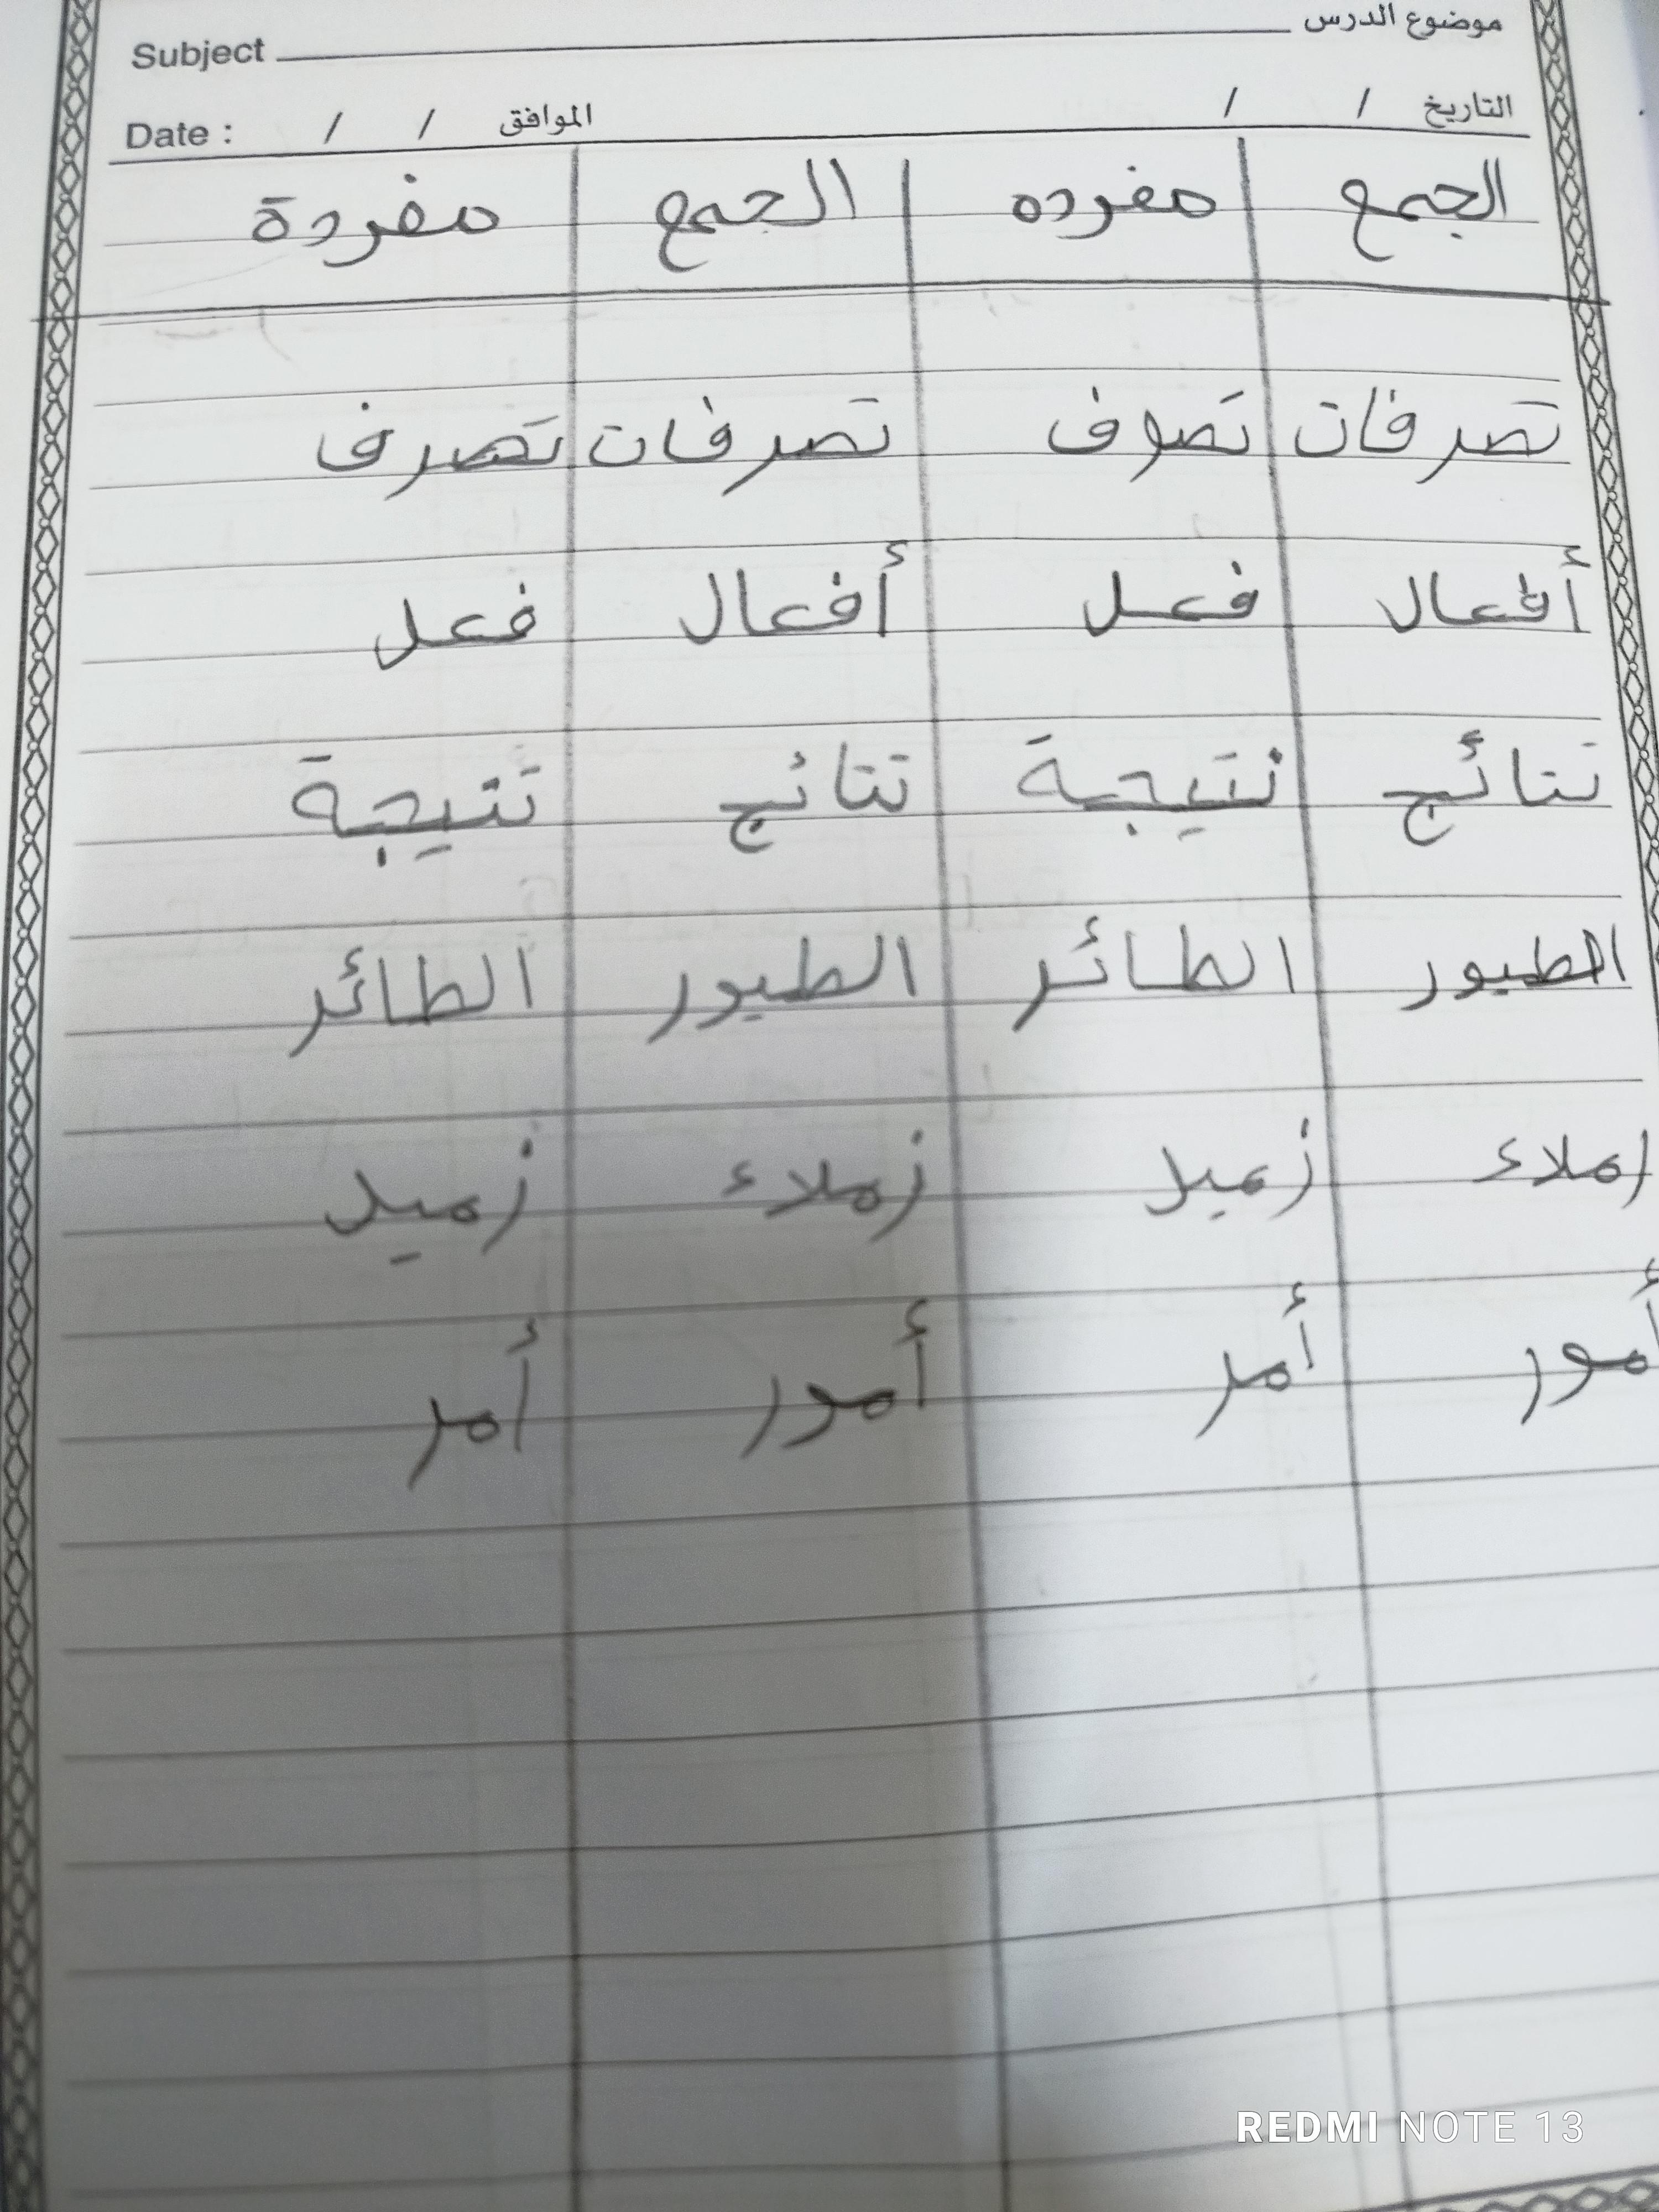 موضوع الدرس Subject
التاريخ / / الموافق / / Date :
الجمع مفرده الجمع مفردة
تصرفات تصرف تصرفات تصرف
أفعال فعل أفعال فعل
نتائج نتيجة نتائج نتيجة
الطيور الطائر الطيور الطائر
زملاء زميل زملاء زميل
أمور أمر أمور أمر
REDMI NOTE 13